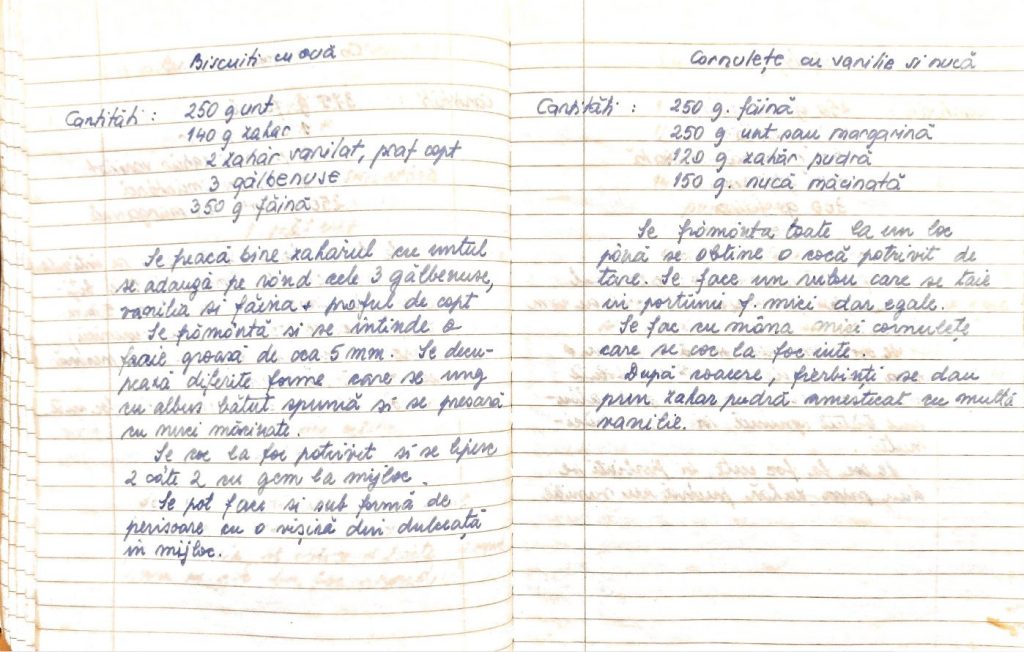 Biscuiti cu ouă
Cantităti : 250 g unt
140 g zahăr
2 zahăr vanilat, praf copt
3 gălbenuse
350 g făină
Se freacă bine zahărul cu untul
se adaugă pe rând cele 3 gălbenuse,
vanilia si făina + praful de copt
Se frământă si se intinde o
foaie groasă de cca 5 mm. Se decu-
pează diferite forme care se ung
cu albus bătut spumă si se presară
cu nuci măcinate.
Se coc la foc potrivit si se lipesc
2 câte 2 cu gem la mijloc.
Se pot face si sub formă de
perisoare cu o vișină din dulceață
in mijloc.
Cornulețe cu vanilie si nucă
Cantităti : 250 g. făină
250 g unt sau margarină
120 g zahăr pudră
150 g. nucă măcinată
Se frământa toate la un loc
până se obtine o cocă potrivit de
tare. Se face un sul care se taie
in portiuni f. mici dar egale.
Se fac cu mâna mici cornulețe
care se coc la foc iute.
După coacere, fierbinți se dau
prin zahar pudră amestecat cu multă
vanilie.